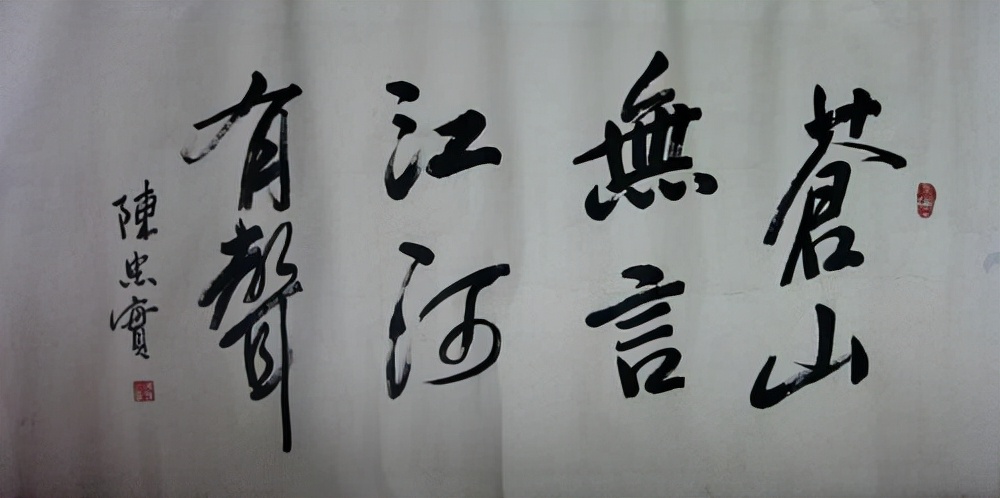 蒼山
無言
江河
有聲
陳忠實